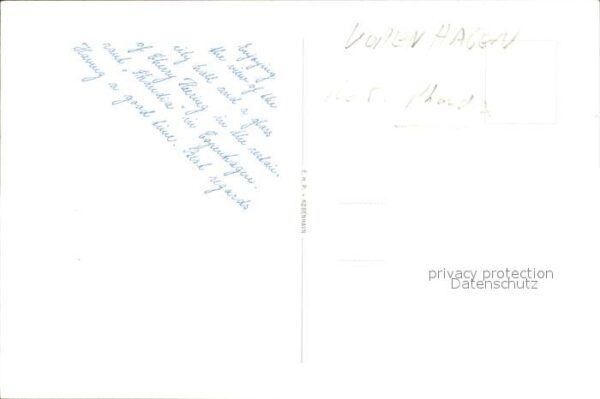 Enjoying
the view of the
city hall and a glass
of Cherry Heering in the restau-
rant "Frascati" in Copenhagen.
Having a good time. Best regards
KOPENHAGEN
E. M. P. - KØBENHAVN
privacy protection
Datenschutz